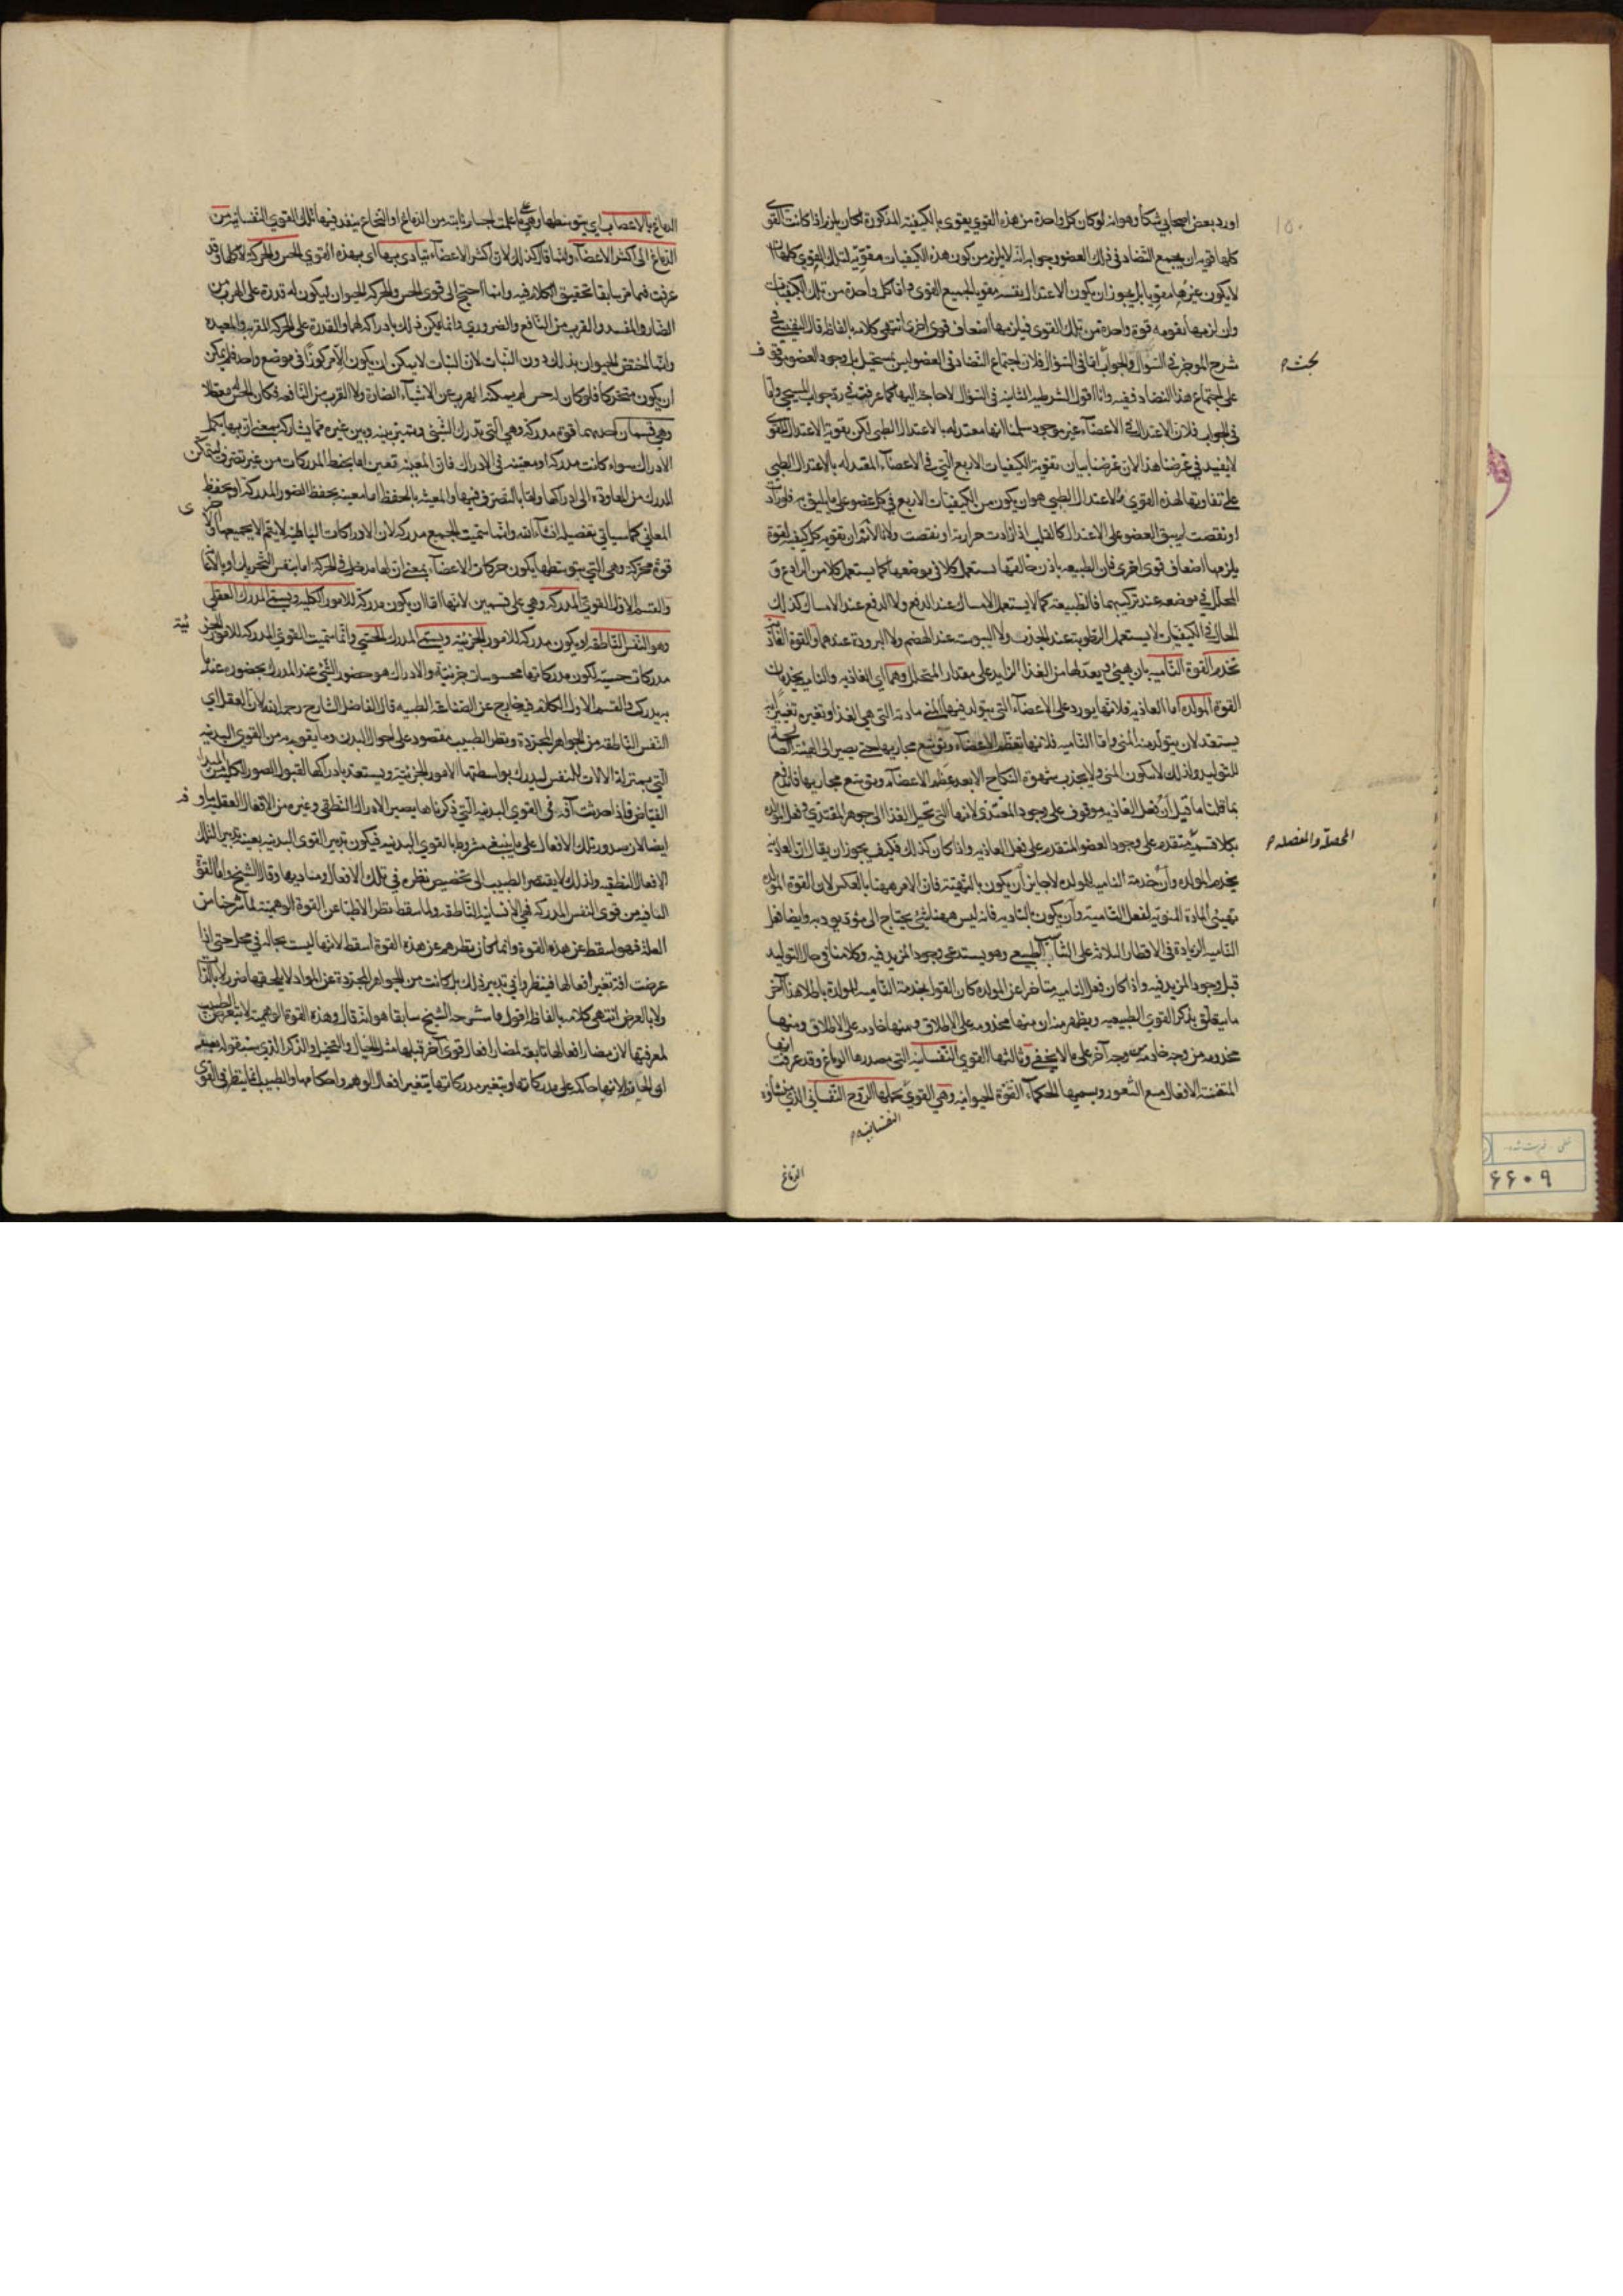 اورد بعض اصحابي شكا وهو انه لو كان كل واحدة من هذه القوي يقوى بالكيفيه المذكورة لكان يلزم اذا كانت القوى
كلها قويه ان يجتمع التضاد في ذلك العضو وجوابه انه لا يلزم من كون هذه الكيفيات مقويه لتلك القوي كلها ان
لا يكون غيرها مقويا بل يجوز ان يكون الاعتدال نفسه مقويا لجميع القوى واما كل واحدة من تلك الكيفيات
وان لزمها تقويه قوة واحدة من تلك القوى فيلزمها اضعاف قوى اخرى انتهى كلامه بالفاظه قال النفيس في
شرح الموجز في السؤال والجواب اما في السؤال فلان اجتماع التضاد في العضو ليس بمستحيل بل وجود العضو موقوف
على اجتماع هذا التضاد فيه وانا اقول الشرطيه الثانيه في السؤال لا حاجة اليها كما عرفت في رد جواب المسيحي واما
في الجواب فلان الاعتدال في الاعضاء غير موجود سلمنا انها معتدله بالاعتدال الطبي لكن تقوية الاعتدال للقوى
لا يفيد في غرضنا هذا لان غرضنا بيان تقوية الكيفيات الاربع التي في الاعضاء المعتدله بالاعتدال الطبي
على تفاوتها لهذه القوي والاعتدال الطبي هو ان يكون من الكيفيات الاربع في كل عضو على ما يليق به فلو زادت
او نقصت لم يبق العضو على الاعتدال كالقلب اذا زادت حرارته او نقصت ولانا لا نم ان تقويه كل كيفيه لقوة
يلزمها اضعاف قوى اخرى فان الطبيعه باذن خالقها يستعمل كلا في موضعها كما يستعمل كلا من الرادع و
المحلل في موضعه عند تركيبهما فالطبيعة كما لا يستعمل الامساك عند الدفع ولا الدفع عند الامساك كذلك
الحال في الكيفيات لا يستعمل الرطوبة عند الجذب ولا اليبوست عند الهضم ولا البرودة عندهما والقوة الغاذيه
تخدم القوة الناميه بان يهيئ ويعد لها من الغذا الزايد على مقدار المتحلل وهما اي الغاذيه والناميه يخدمان
القوة المولده اما الغاذيه فلانها يورد على الاعضاء التي يتولد فيها المني مادته التي هي الغذا وتغيره تغييرا به
يستعد لان يتولد منه المني واما الناميه فلانها تعظم الاعضاء وتوسع مجاريها حتى يصير الى الهيئة الصالحة
للتوليد ولذلك لا يتكون المني ولا يجذب شهوة النكاح الا بعد عظم الاعضاء وتوسع مجاريها فاندفع
بما قلنا ما قيل ان فعل الغاذيه موقوف على وجود المغتذي لانها التي تحيل الغذا الى جوهر المغتذي وفعل المولده
بكلا قسميه متقدم على وجود العضو المتقدم على فعل الغاذيه واذا كان كذلك فكيف يجوز ان يقال ان الغاذيه
يخدم المولده وان خدمة الناميه للمولده لا جايز ان يكون بالتهيئة فان الامر ههنا بالعكس لان القوة المولده
تهيئ المادة المنويه لفعل الناميه وان يكون بالتاديه فانه ليس ههنا شئ يحتاج الى مؤد يوديه وايضا فعل
الناميه الزيادة في الاقطار الثلاثة على التناسب الطبيعي وهو يستدعي وجود المزيد فيه وكلامنا في حال التوليد
قبل وجود المزيد فيه واذا كان فعل الناميه متاخرا عن المولده كان القول بخدمة الناميه للمولدة باطلا هذا آخر
ما يتعلق بذكر القوي الطبيعيه ويظهر منه ان منها مخدومه على الاطلاق ومنها خادمه على الاطلاق ومنها
مخدومه من وجه خادمه من وجه آخر على ما لا يخفى وثالثها القوي النفسانيه التي مصدرها الدماغ وقد عرفت انها
المتفننة الافعال مع الشعور ويسميها الحكماء القوة الحيوانيه وهي القوي يحملها الروح النفساني الذي منشاؤه
النفسانيه م
الدماغ
بحث م
المحصلة والمفصله م
١٥٠
الدماغ بالاعصاب اي بتوسطها وهي على ما علمت اجسام نابته من الدماغ او النخاع ينفذ فيها تلك القوي النفسانيه من
الدماغ الى اكثر الاعضاء وانما قال كذلك لان اكثر الاعضاء يتادى بها اي بهذه القوي الحس والحركة لا كلها وقد
عرفت فيما مر سابقا تحقيق الكلام فيه وانما احتيج الى قوى الحس والحركة الحيوان ليكون له قدرة على الهرب من
الضار والمفسد والقرب من النافع والضروري وانما يمكن ذلك بادراكه لها والقدرة على الحركة المقربه والمبعده
وانما المختص الحيوان بذلك دون النبات لان النبات لا يمكن ان يكون الا مركوزا في موضع واحد فلم يمكن
ان يكون متحركا فلو كان له حس لم يمكنه الهرب عن الاشياء الضارة ولا القرب من النافعة فكان الحس معطلا
وهي قسمان احدهما قوة مدركة وهي التي تدرك الشئ ويتميز بينه وبين غيره مما يشاركه بمعنى ان بها يكمل
الادراك سواء كانت مدركه او معينه في الادراك فان المعينه تعين اما بحفظ المدركات من غير تصرف ليتمكن
المدرك من المعاودة الى ادراكها واما بالتصرف فيها والمعينه بالحفظ اما معينه بحفظ الصور المدركه او بحفظ
المعاني كما سياتي تفصيله انشاء الله وانما سميت الجميع مدركه لان الادراكات الباطنه لا يتم الا بجميعها والاخرى
قوة محركة وهي التي بتوسطها يكون حركات الاعضاء بمعنى ان لها مدخل في الحركة اما بنفس التحريك او بالاعانة
والقسم الاول القوي المدركة وهي على قسمين لانها اما ان يكون مدركة للامور الكليه ويسمى المدرك العقلي
وهو النفس الناطقه او يكون مدركه للامور الجزئيه ويسمى المدرك الحسي وانما سميت القوي المدركه للامور الجزئية
مدركات حسيه لكون مدركاتها محسوسات جزئية والادراك هو حضور الشئ عند المدرك بحضوره عند ما
به يدرك والقسم الاول الكلام فيه خارج عن الصناعة الطبيه قال الفاضل الشارح رحمه الله لان العقل اي
النفس الناطقه من الجواهر المجردة ونظر الطبيب مقصود على احوال البدن وما يقوم به من القوي البدنيه
التي بمنزلة الالات للنفس ليدرك بواسطتها الامور الجزئيه ويستعد بادراكها لقبول الصور الكليه من المبدا
الفياض فاذا حدثت آفه في القوي البدنيه التي ذكرناها يصير الادراك النطقي وغيره من الافعال العقليه ماوفه
ايضا لان صدور تلك الافعال على ما ينبغي مشروط بالقوي البدنيه فيكون تدبير القوى البدنيه بعينه تدبير لتلك
الافعال النطقيه ولذلك لا يقتصر الطبيب الى تخصيص نظره في تلك الافعال ومباديها وقال الشيخ واما القوة
الباقيه من قوى النفس المدركه فهي الانسانيه الناطقه ولما سقط نظر الاطبا عن القوة الوهمية لما شرحنا من
العلة فهو اسقط عن هذه القوة وانما كان نظرهم عن هذه القوة اسقط لانها ليست بحاله في محل حتى اذا
عرضت افة تغير افعالها فينظروا في تدبير ذلك بل كانت من الجواهر المجردة عن المواد لا يلحقها ضرر لا بالذات
ولا بالعرض انتهى كلامه بالفاظه اقول ما شرحه الشيخ سابقا هو انه قال وهذه القوة الوهمية لا يتعرض الطبيب
لمعرفتها لان مضار افعالها تابعة لمضار افعال قوى آخر قبلها مثل الخيال والتخيل والذكر الذي سنقوله بعد
اى الحافظه لانها حاكمة على مدركاتها وبتغير مدركاتها يتغير افعال الوهم واحكامها والطبيب انما ينظر في القوى
خطی - فهرست شده
٦٦٠٩